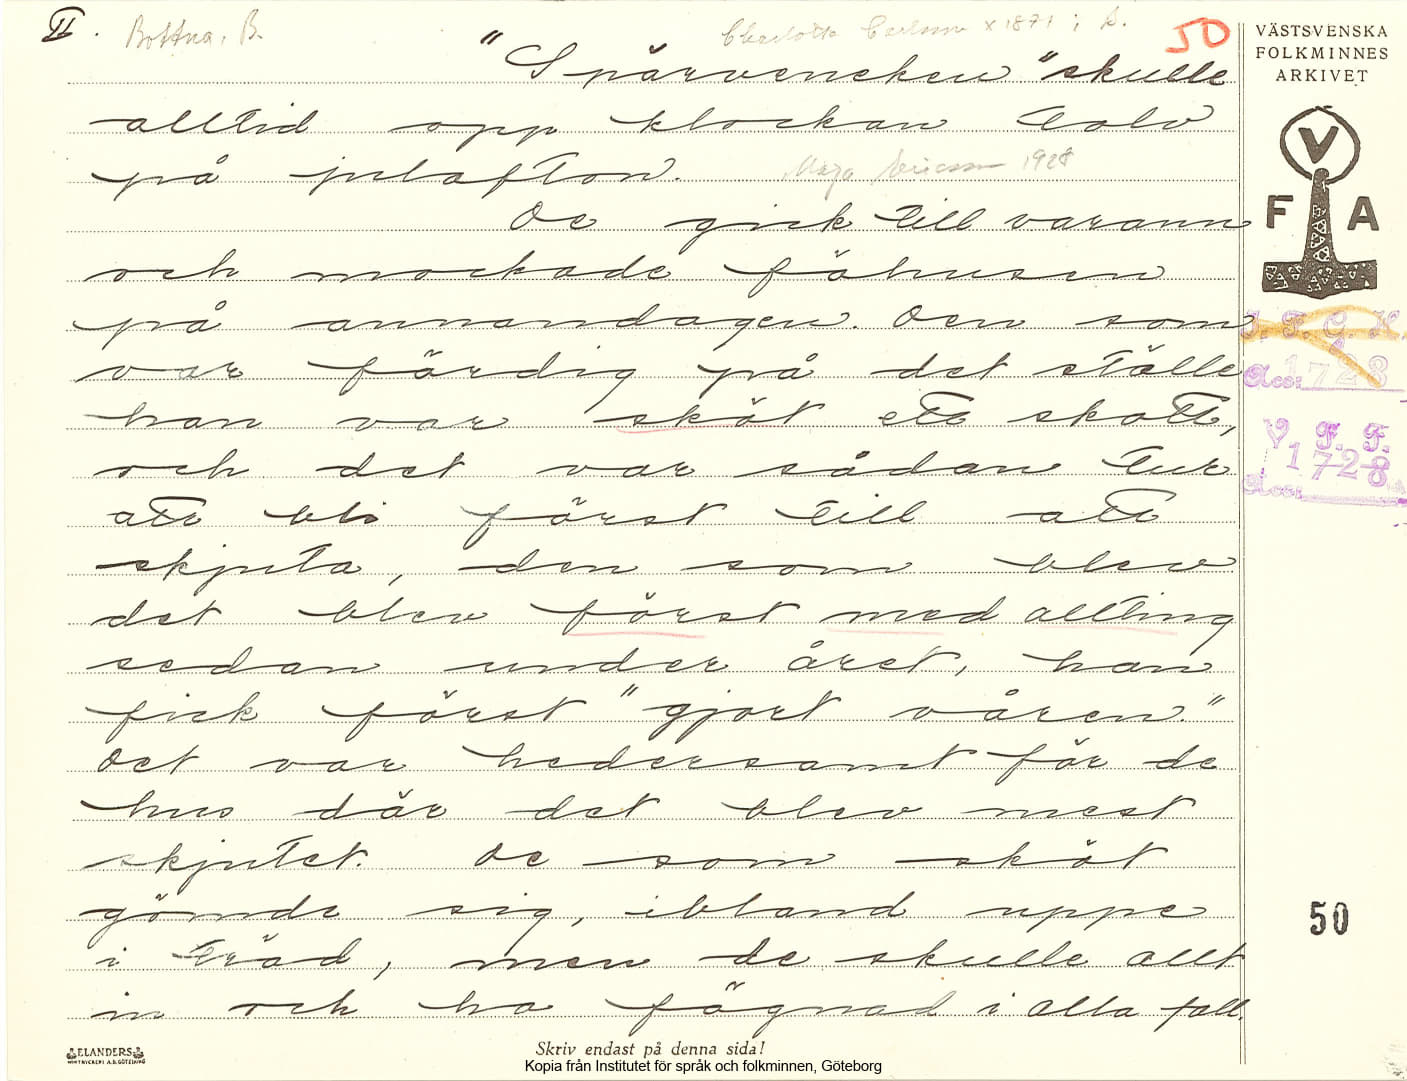 II. Bottna, B. Charlotta Carlsson x 1871 ; S. 50
VÄSTSVENSKA
FOLKMINNES
ARKIVET
V
F A
"Spårvencken" skulle
alltid opp klockan tolv
på julafton.
Maja Ericson 1928
De gick till varann
och mockade fähusen
på annandagen. Den som
var färdig på det ställe
han var sköt ett skott,
och det var sådan tur
att bli först till att
skjuta, den som blev
det blev först med allting
sedan under året, han
fick först "gjort våren."
Det var hedersamt för de
hus där det blev mest
skjutet. De som sköt
gömde sig, ibland uppe
i träd, men de skulle allt
in och ha fägnad i alla fall.
I. F. G. H.
Acc: 1728
V. F. F.
1728
Acc:
50
ELANDERS
Skriv endast på denna sida!
Kopia från Institutet för språk och folkminnen, Göteborg